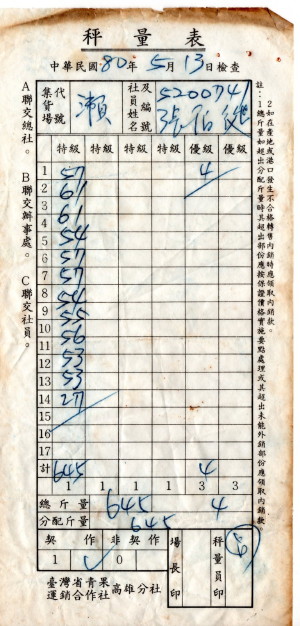 秤量表
中華民國80年5月13日檢查
集貨場代號 瀨 社員姓名及編號 5200741
張
特級 特級 特級 特級 優級 優級
1 57 4
2 61
3 61
4 54
5 57
6 57
7 57
8 54
9 55
10 56
11
12 53
13 53
14 27
15
16
17
計 645 4
1 1 1 1 3 3
總斤量 645 4
分配斤量 645
契作 非契作 場長印 秤量員印
1 0
臺灣省青果運銷合作社高雄分社
A聯交總社。 B聯交辦事處。 C聯交社員。
註:1總斤量如超出分配斤量時其超出部份應按保證價格實施要點處理或其超出未能外銷部份應領取內銷款。
2如在產地或港口發生不合格轉售內銷時應領取內銷款。